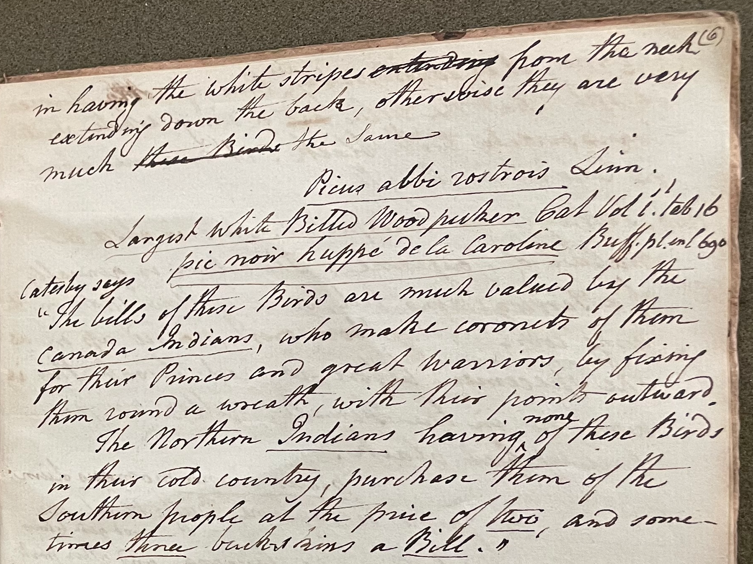 (6)
in having the white stripes extending from the neck
extending down the back, otherwise they are very
much these Birds the same
Picus albi rostrois Linn.
Largest white Billed Woodpecker Cat Vol 1. Tab 16
pic noir huppé de la Caroline Buff. pl. enl 690
Catesby says
"The bills of these Birds are much valued by the
Canada Indians, who make coronets of them
for their Princes and great warriors, by fixing
them round a wreath, with their points outward.
The Northern Indians having none of these Birds
in their cold country, purchase them of the
Southern people at the price of two, and some-
times three buckskins a Bill."